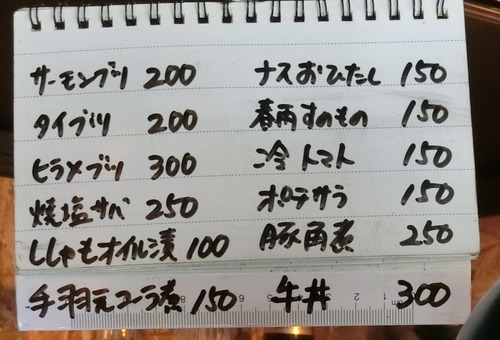 サーモンブツ 200
タイブツ 200
ヒラメブツ 300
焼塩サバ 250
ししゃもオイル漬 100
手羽元コーラ煮 150
ナスおひたし 150
春雨すのもの 150
冷トマト 150
ポテサラ 150
豚角煮 250
牛丼 300